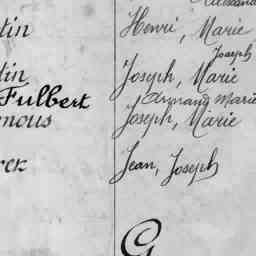 tin Henri, Marie
Joseph
tin Joseph, Marie
Fulbert Armand Marie
nous Joseph, Marie
rck Jean, Joseph
G